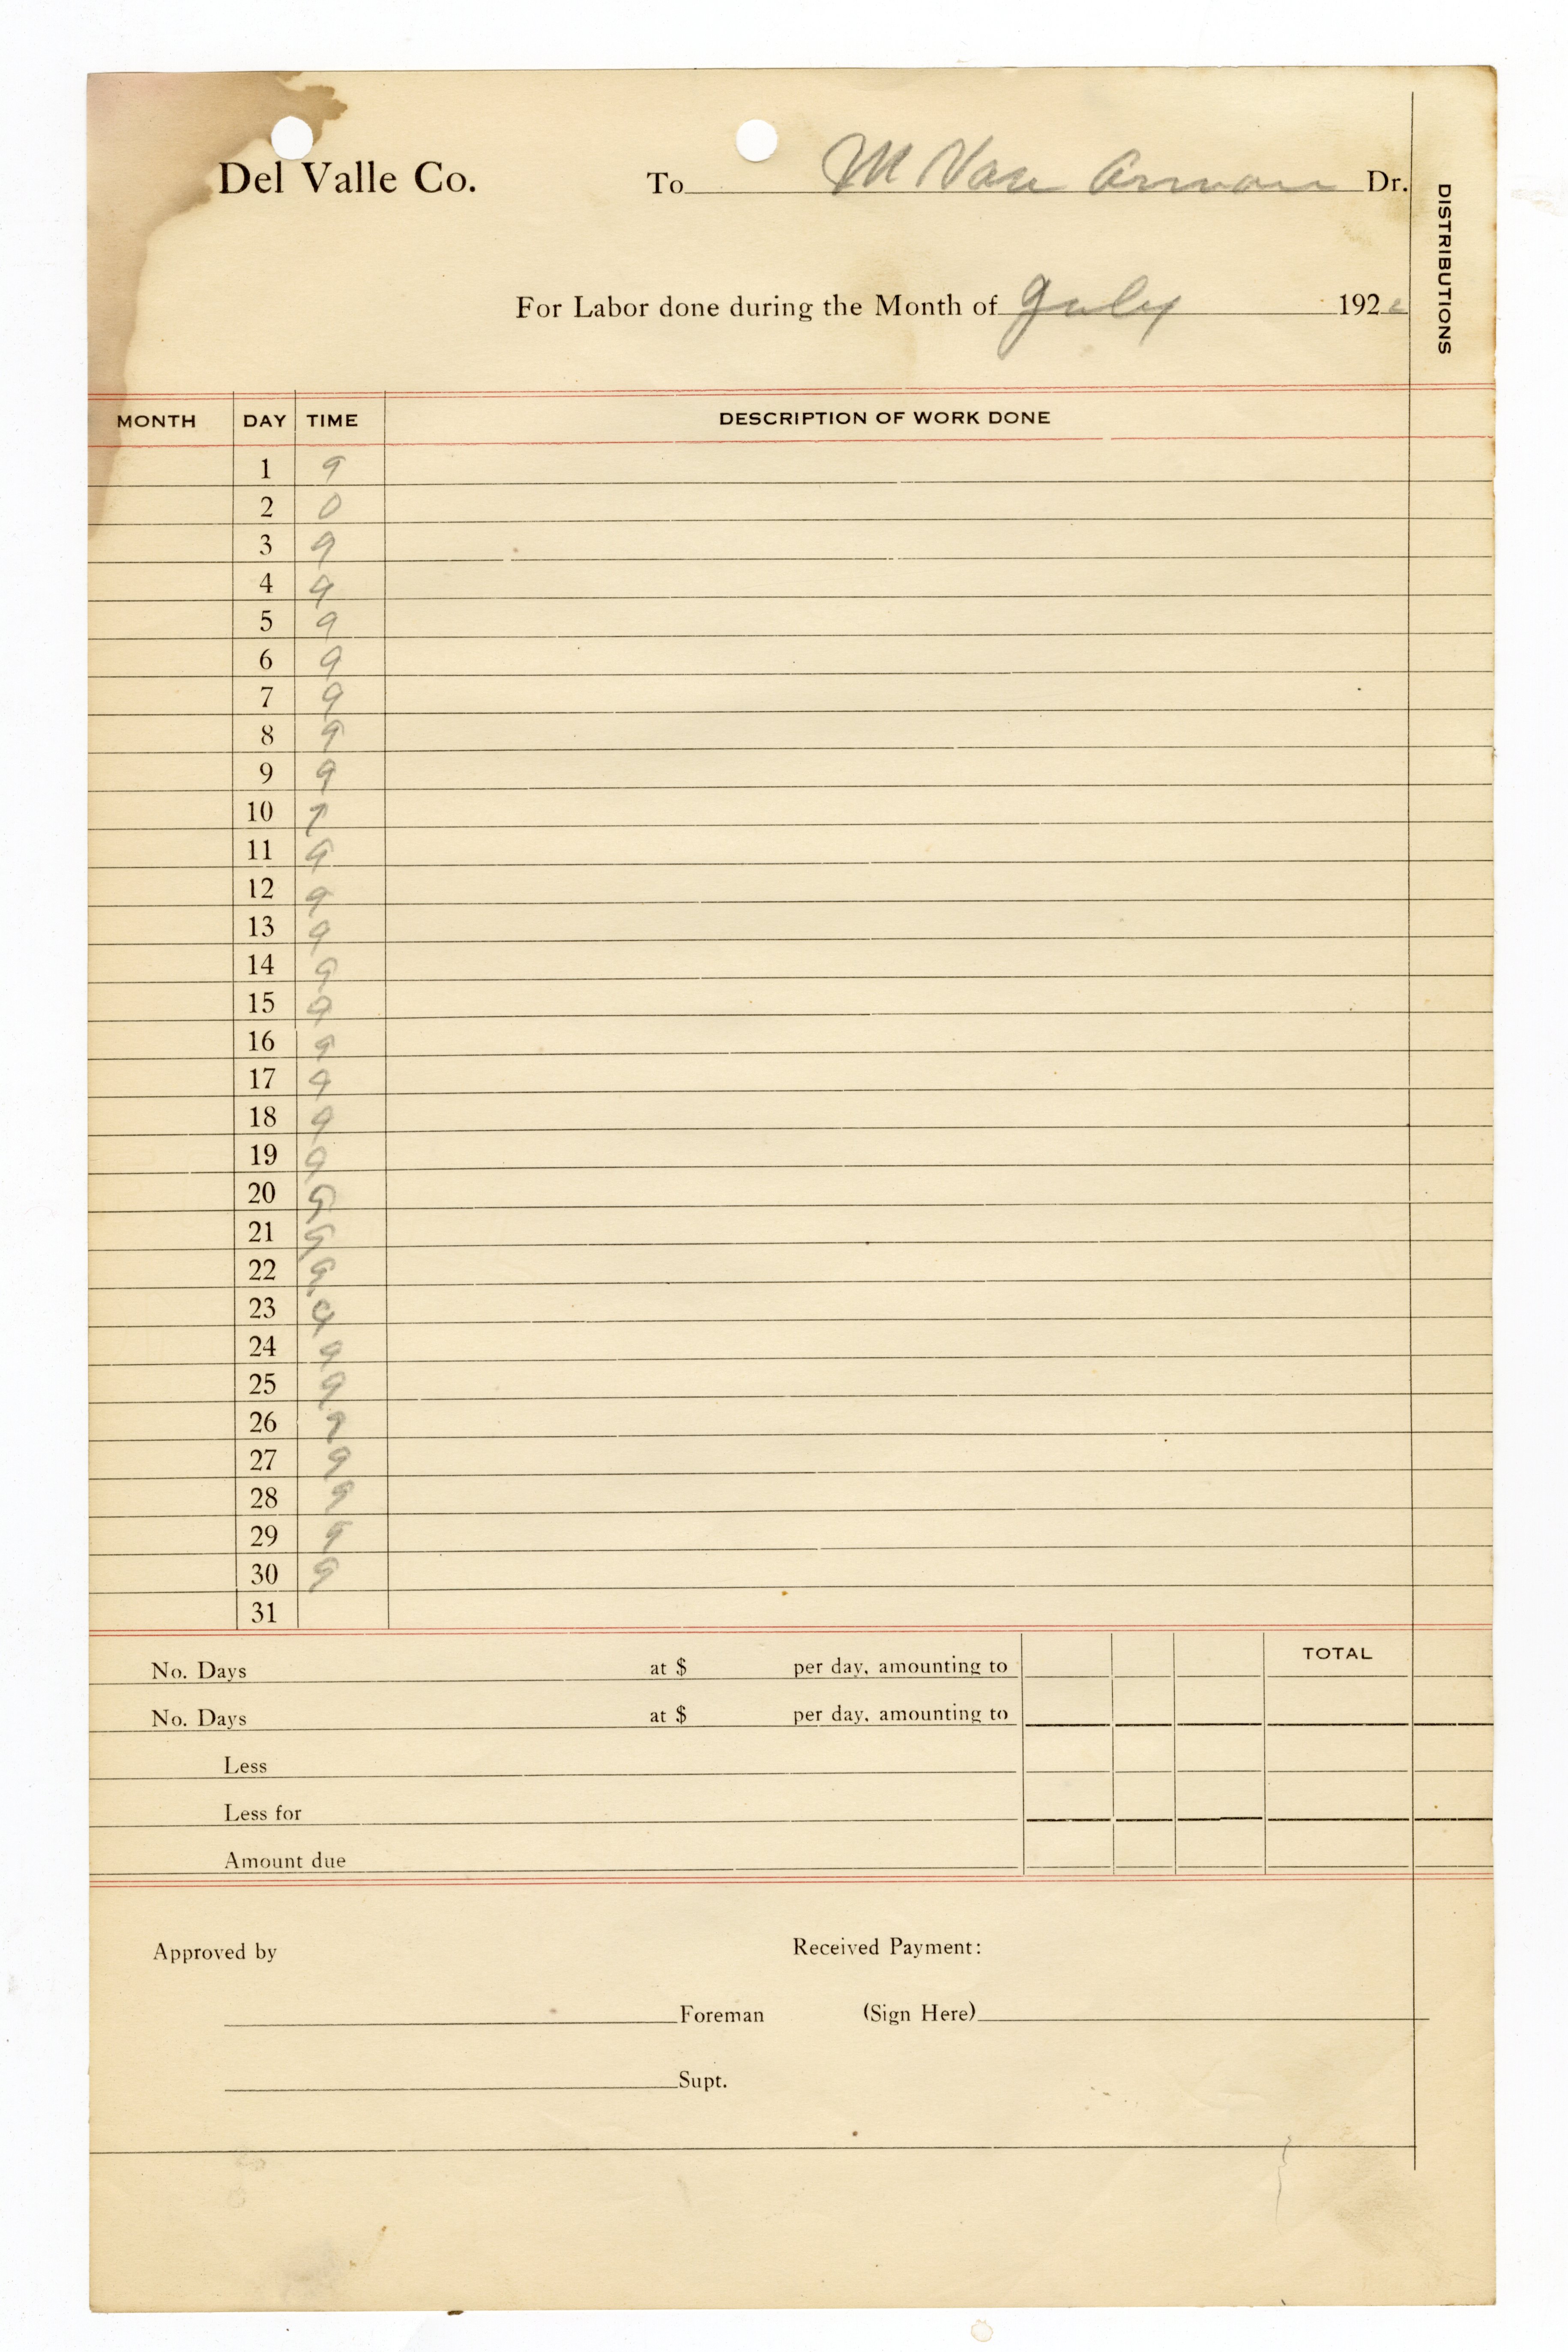 Del Valle Co. To M Van Arman Dr.
DISTRIBUTIONS
For Labor done during the Month of July 192
MONTH DAY TIME DESCRIPTION OF WORK DONE
1 9
2 0
3 9
4 9
5 9
6 9
7 9
8 9
9 9
10 7
11 9
12 9
13 9
14 9
15 9
16 9
17 9
18 9
19 9
20 9
21 9
22 9
23 9
24 9
25 9
26 9
27 9
28 9
29 9
30 9
31
TOTAL
No. Days at $ per day, amounting to
No. Days at $ per day, amounting to
Less
Less for
Amount due
Approved by Received Payment:
Foreman (Sign Here)
Supt.